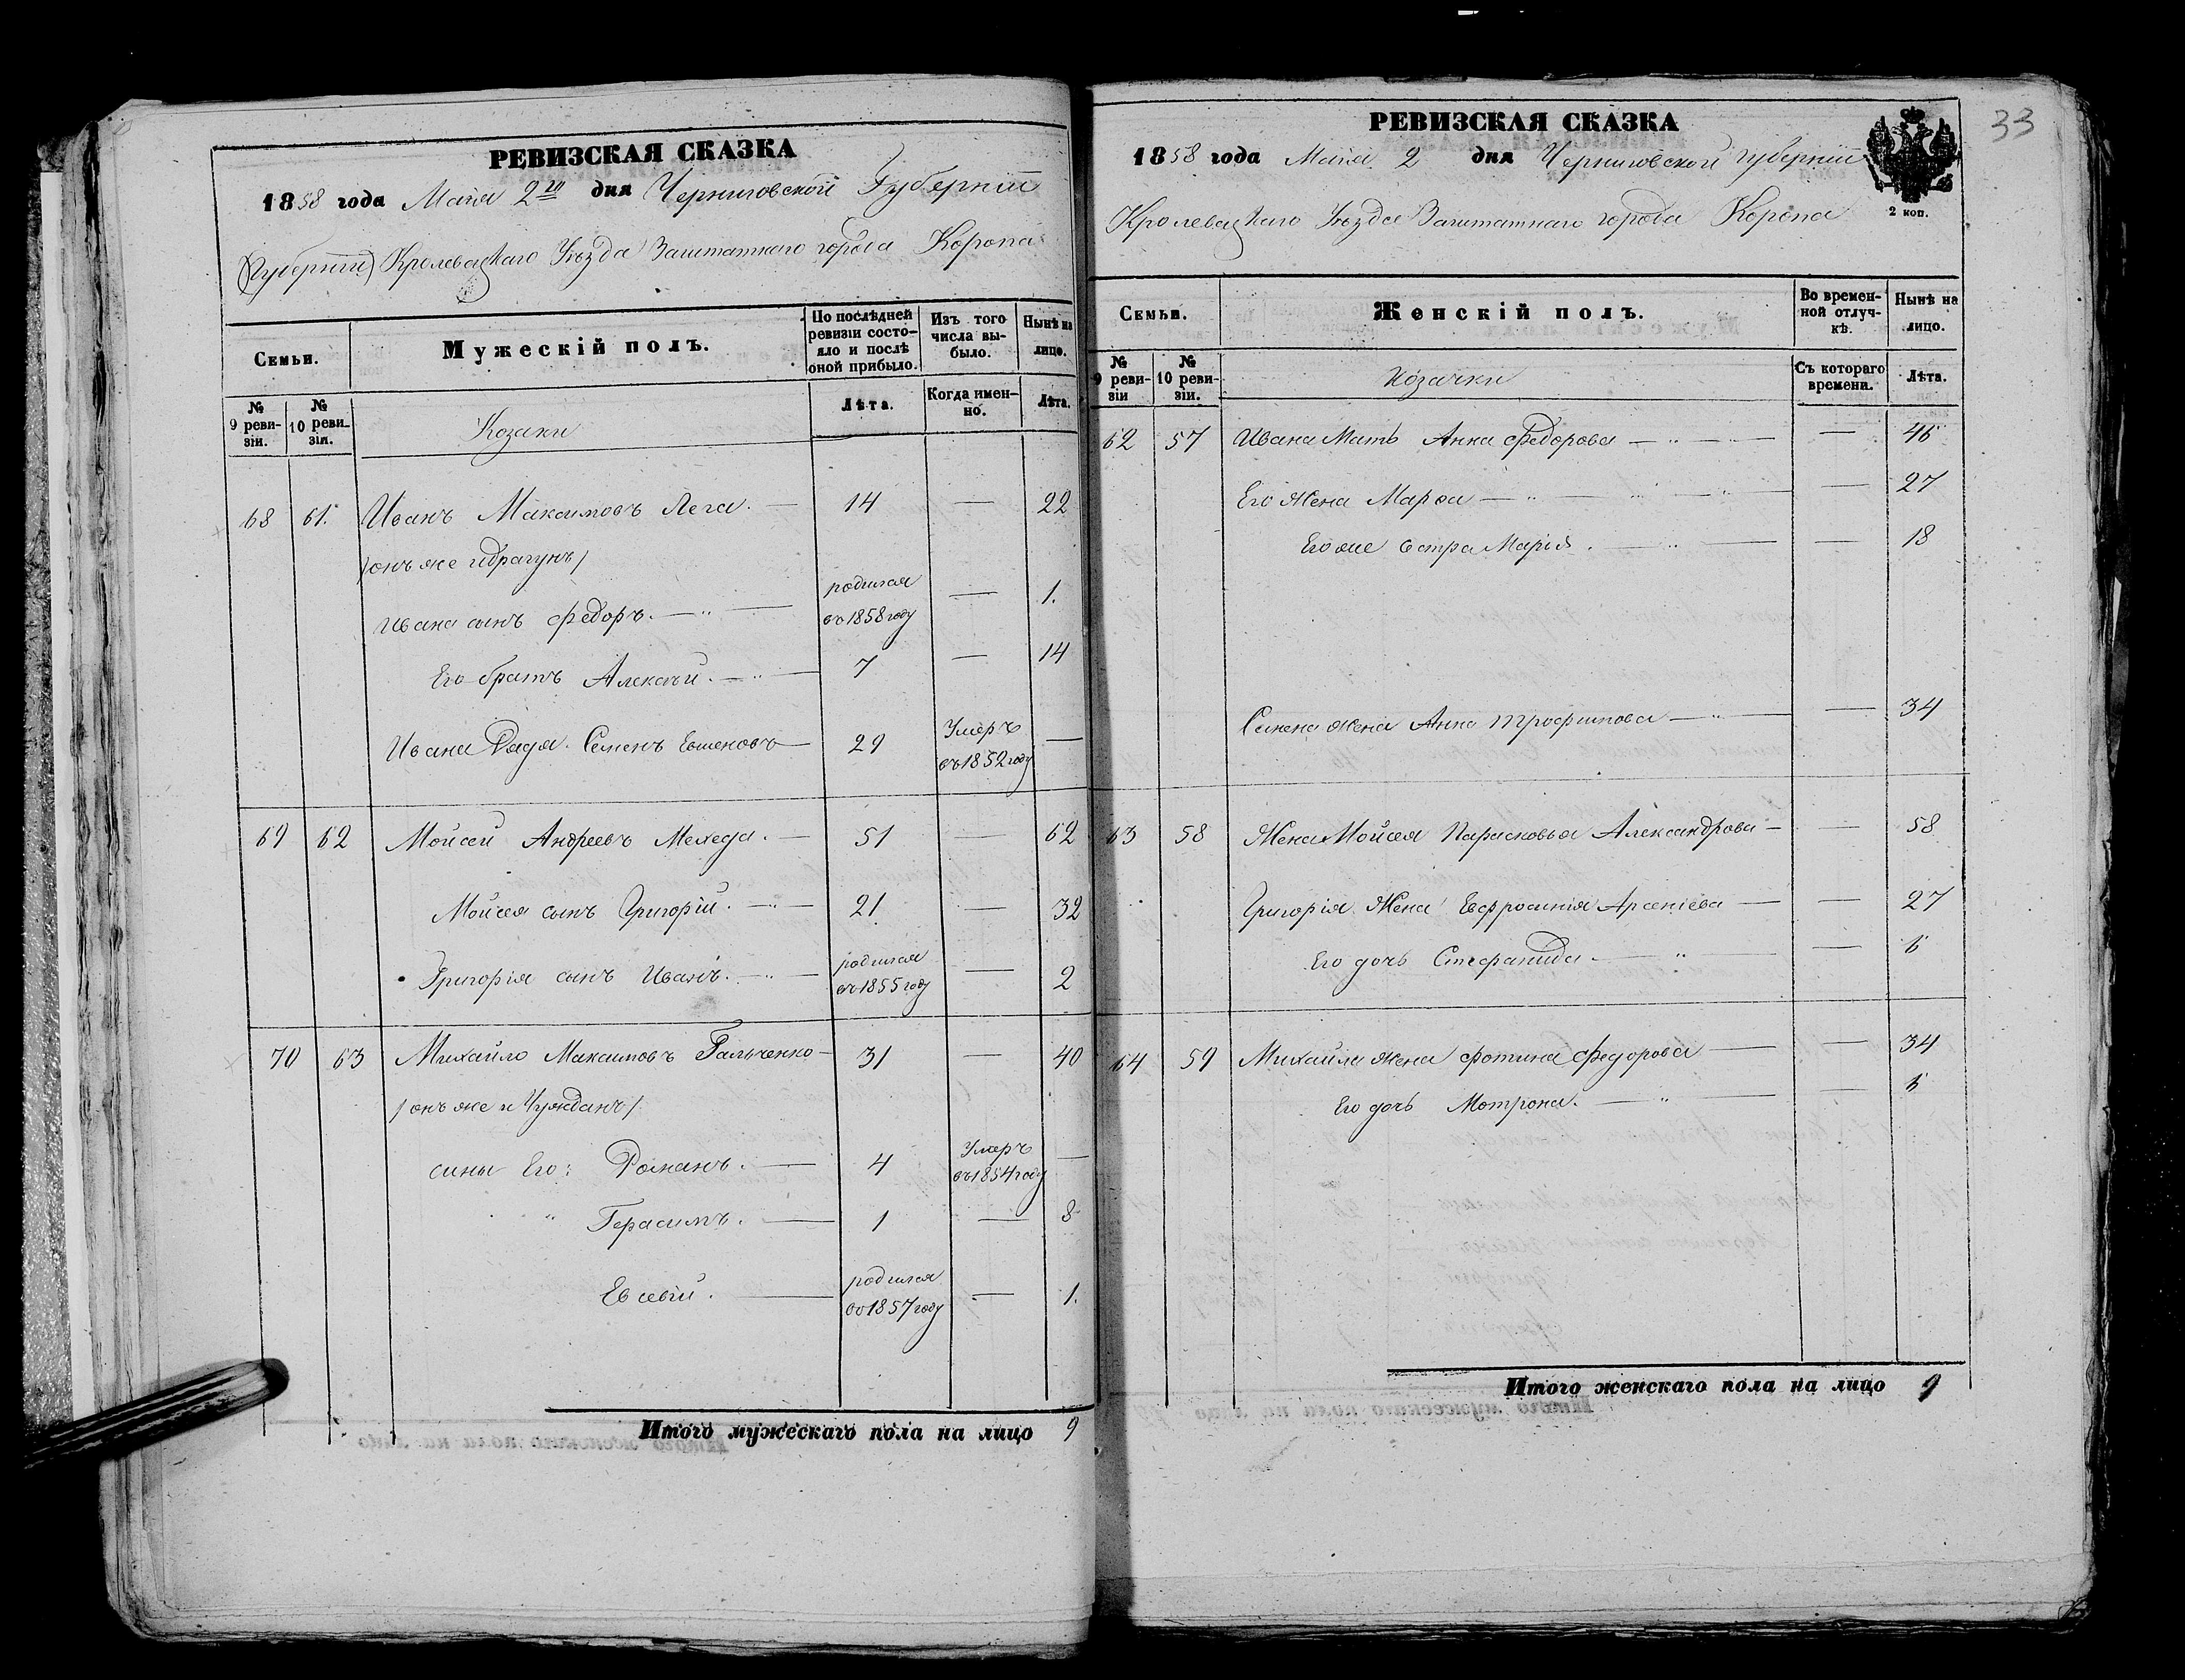 РЕВИЗСКАЯ СКАЗКА
1858 года Маія 2го дня Черниговской Губерніи
(Губерніи) Кролевецкаго Уѣзда Заштатнаго города Коропа
Семьи.
Мужескій полъ.
По послѣдней ревизіи состояло и послѣ оной прибыло.
Изъ того числа выбыло.
Нынѣ на лицо.
№ 9 ревизіи.
№ 10 ревизіи.
Козаки
Лѣта.
Когда именно.
Лѣта.
68 61. Иванъ Максимовъ Лега. — 14 — 22
/онъ же и драгунъ/
Ивана сынъ Федоръ. — родился въ 1858 году — 1.
Его братъ Алексѣй. — 7 — 14
Ивана Дядя. Семенъ — 29 Умеръ въ 1852 году —
69 62 Мойсей Андреевъ Мехеда. — 51 — 62
Мойсея сынъ Григорій. — 21 — 32
Григорія сынъ Иванъ. — родился въ 1855 году — 2
70 63 Михайло Максимовъ Гальченко — 31 — 40
/онъ же и Чужданъ/
сины Его: Романъ. — 4 Умеръ въ 1854 году —
" Герасимъ. — 1 — 8
Евсевій. — родился въ 1857 году — 1.
Итого мужескаго пола на лицо 9
33
РЕВИЗСКАЯ СКАЗКА
1858 года Маія 2 дня Черниговской Губерніи
Кролевецкаго Уѣзда Заштатнаго города Коропа
2 коп.
Семьи.
Женскій полъ.
Во временной отлучкѣ.
Нынѣ на лицо.
№ 9 ревизіи
№ 10 ревизіи.
Козачки
Съ котораго времени.
Лѣта.
62 57 Ивана Мать Анна Федорова — — 46
Его Жена Марфа — — 27
Его же Сестра Марія. — — 18
Семена Жена Анна Трофимова — — 34
63 58 Жена Мойсея Парасковья Александрова — — 58
Григорія Жена Евфросинія Арсеніева — — 27
Его дочь Стефанида. — — 6
64 59 Михайла Жена Фотина Федорова — — 34
Его дочь Мотрона. — — 6
Итого женскаго пола на лицо 9